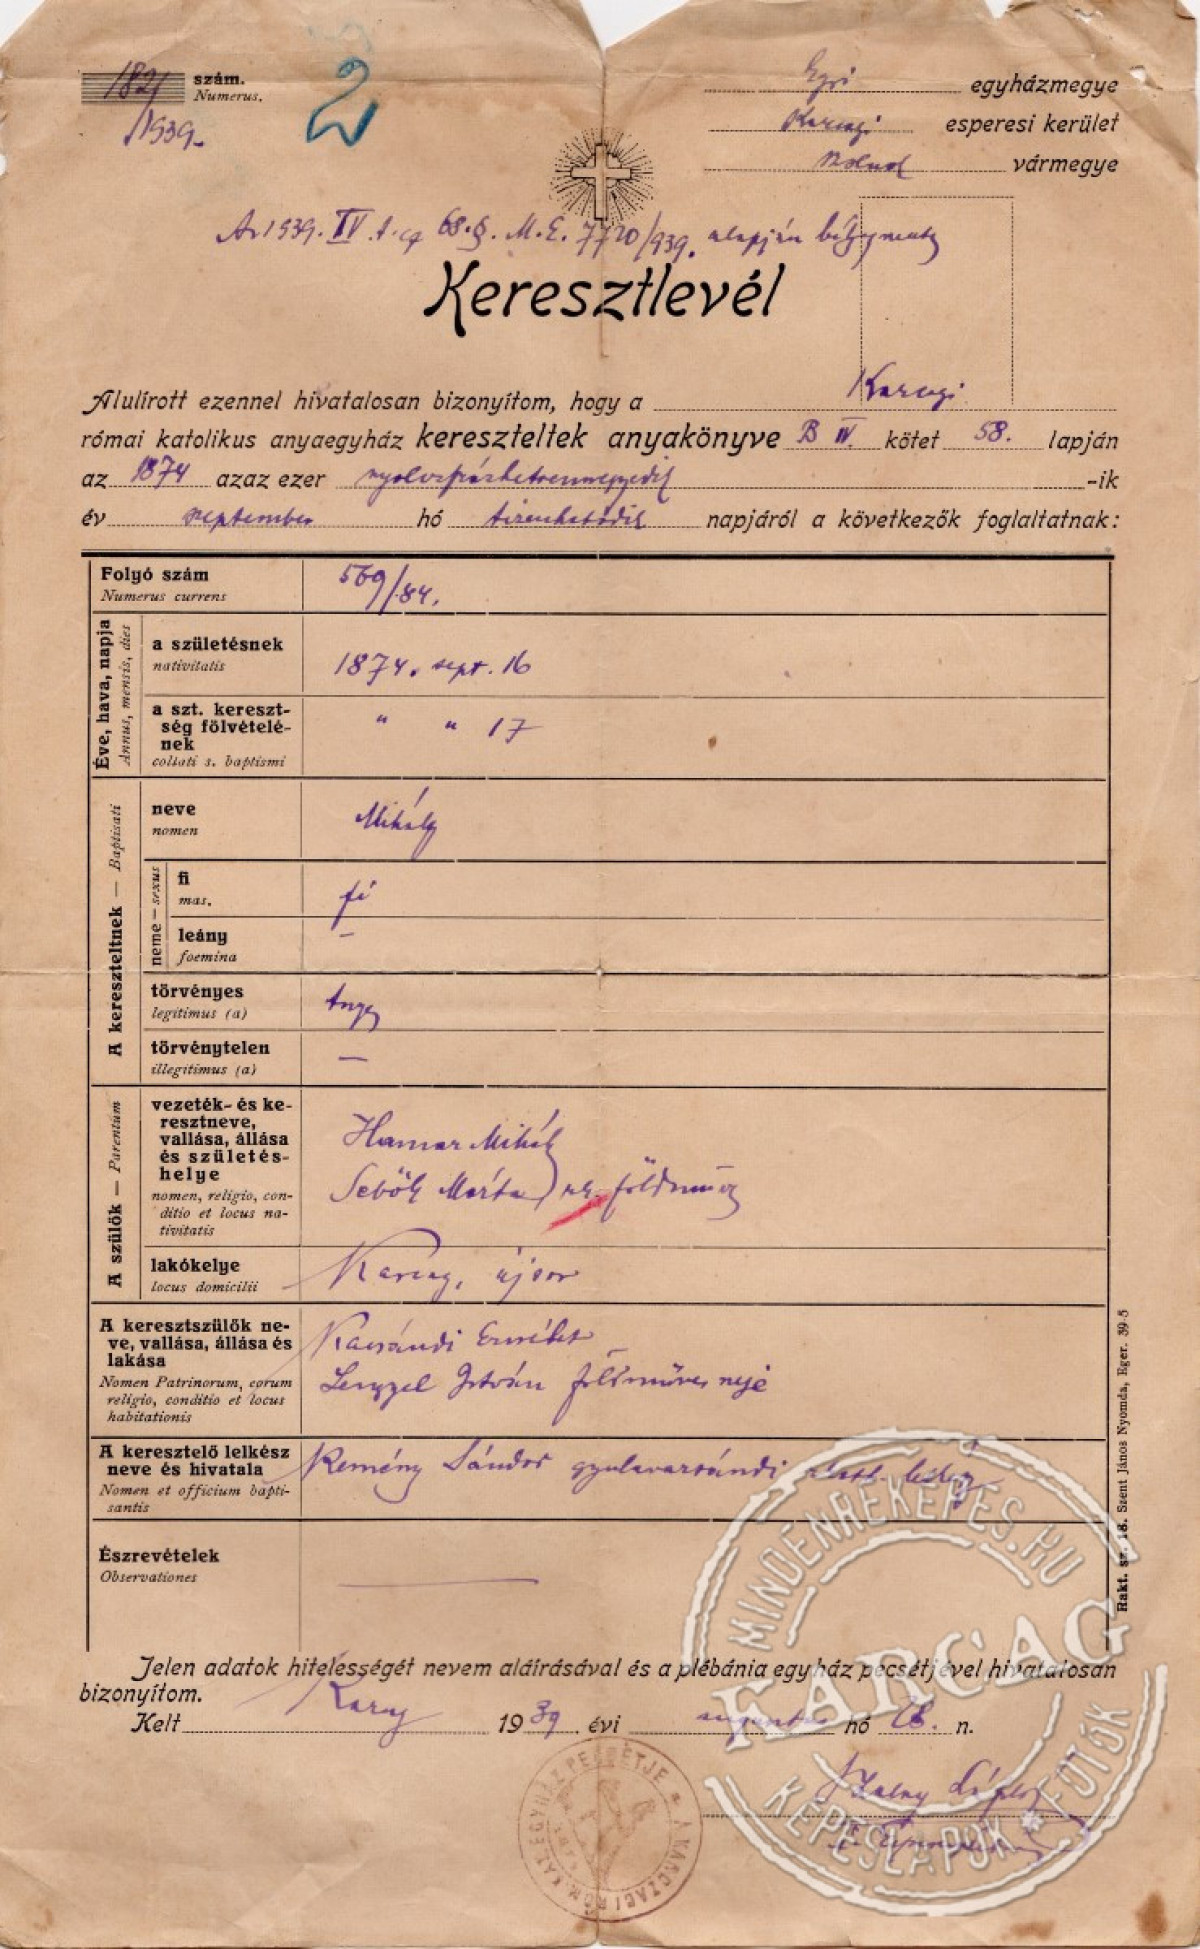 182/ szám.
Numerus.
/1939.
2
Egri egyházmegye
Karcagi esperesi kerület
Szolnok vármegye
Az 1939. IV. t. cz 68. §. M. E. 7720/939. alapján bélyegmentes
Keresztlevél
Alulírott ezennel hivatalosan bizonyítom, hogy a Karcagi
római katolikus anyaegyház kereszteltek anyakönyve B IV. kötet 58. lapján
az 1874 azaz ezer nyolcszázhetvennegyedik -ik
év szeptember hó tizenhatodik napjáról a következők foglaltatnak:
Folyó szám
Numerus currens
569/84.
Éve, hava, napja
Annus, mensis, dies
a születésnek
nativitatis
1874. sept. 16
a szt. kereszt-
ség fölvételé-
nek
collati s. baptismi
" " 17
A kereszteltnek — Baptisati
neve
nomen
Mihály
neme — sexus
fi
mas.
fi
leány
foemina
–
törvényes
legitimus (a)
törvénytelen
illegitimus (a)
—
A szülők — Parentum
vezeték- és ke-
resztneve,
vallása, állása
és születés-
helye
nomen, religio, con-
ditio et locus na-
tivitatis
Hamar Mihály
Sebők Márta rk. földműv
lakókelye
locus domicilii
Karcag, újsor
A keresztszülők ne-
ve, vallása, állása és
lakása
Nomen Patrinorum, eorum
religio, conditio et locus
habitationis
Kacsándi Erzsébet
Lengyel István földműves nejé
A keresztelő lelkész
neve és hivatala
Nomen et officium bapti-
santis
Kemény Sándor gyulavarsándi
Észrevételek
Observationes
Jelen adatok hitelességét nevem aláírásával és a plébánia egyház pecsétjével hivatalosan
bizonyítom.
Kelt Karcag 1939. évi augusztus hó 28. n.
László
Rakt. sz. 18. Szent János Nyomda, Eger. 39·5
A KARCZAGI RÓM. KAT. EGYHÁZ PECSÉTJE
MINDENREKEPES.HU
KARCAG
KÉPESLAPOK * FOTÓK